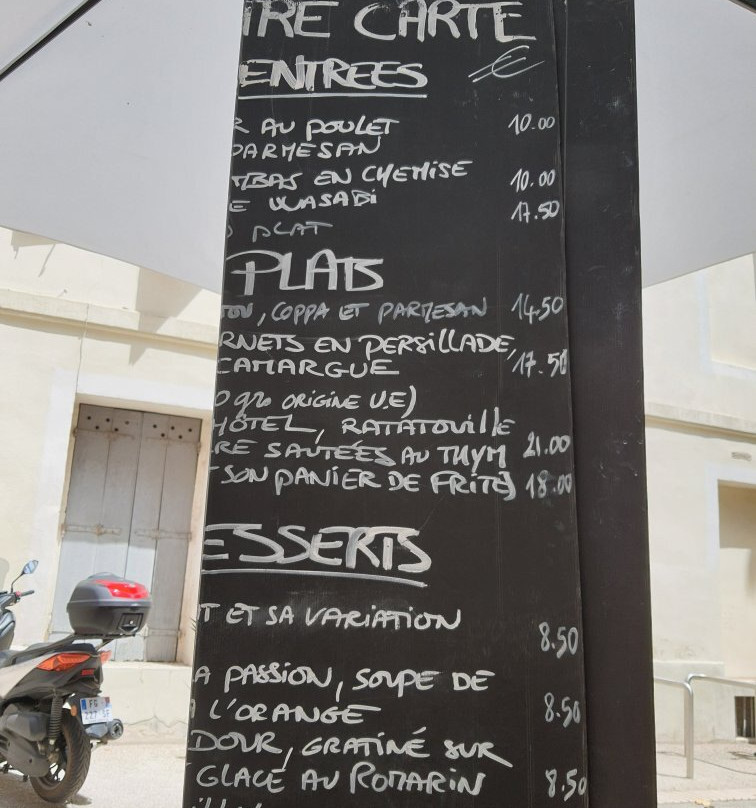 TRE CARTE
ENTREES €
R AU POULET 10.00
PARMESAN
MBAS EN CHEMISE 10.00
E WASABI 17.50
PLAT
PLATS
TON, COPPA ET PARMESAN 14.50
RNETS EN PERSILLADE,
CAMARGUE 17.50
0 gr ORIGINE U.E)
HÔTEL, RATATOUILLE
RE SAUTÉES AU THYM 21.00
T SON PANIER DE FRITES 18.00
ESSERTS
T ET SA VARIATION 8.50
A PASSION, SOUPE DE
L'ORANGE 8.50
DOUR, GRATINÉ SUR
GLACE AU ROMARIN 8.50